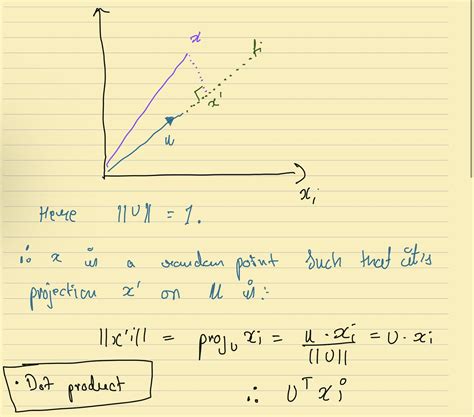 x
fi
x'
u
xi
Here ||U|| = 1.
∴ x is a random point such that it's
projection x' on u is :-
||x'i|| = projU xi = u · xi / ||U|| = U · xi
• Dot product
∴ U^T xi